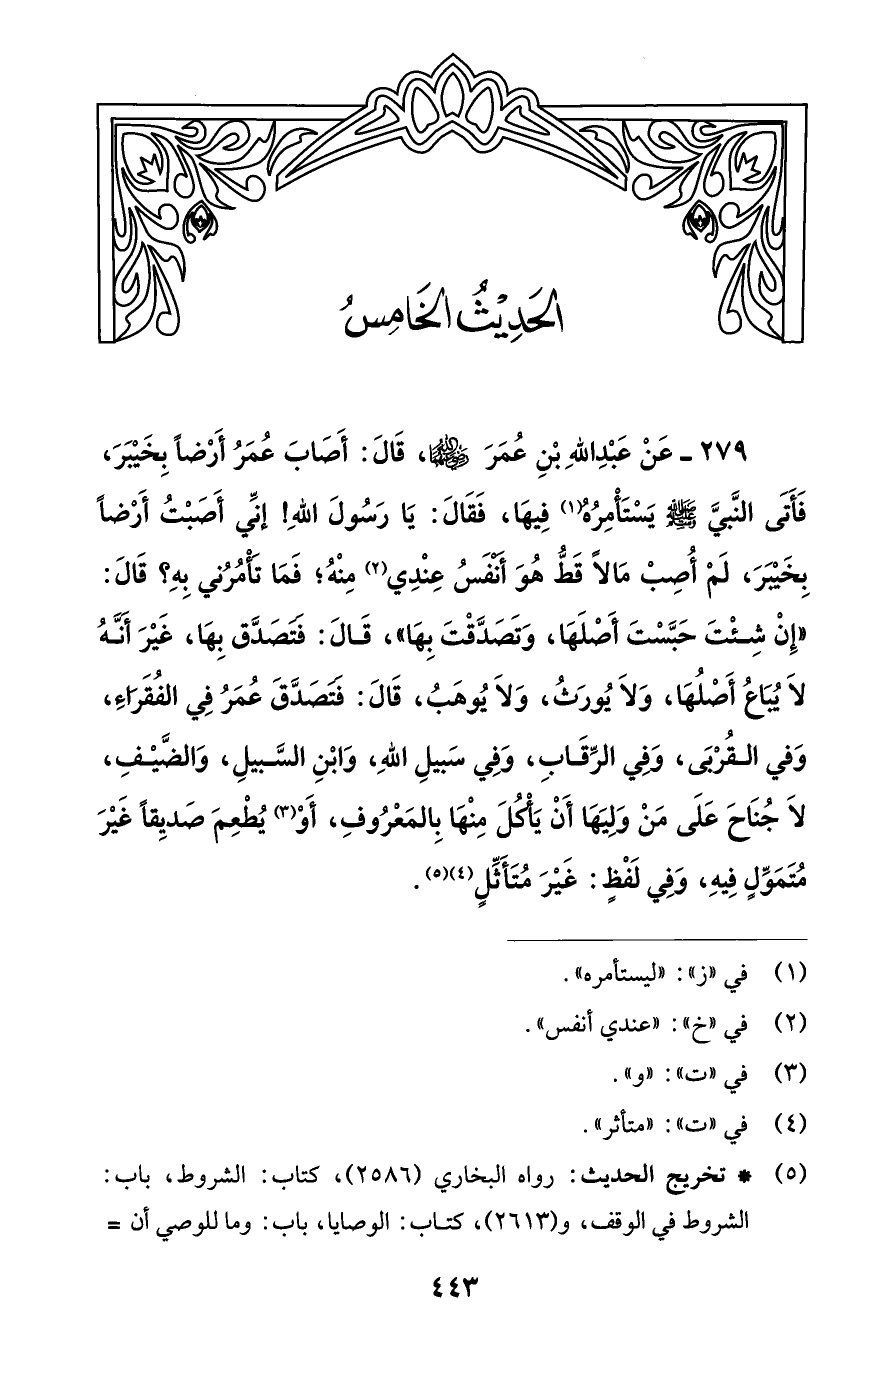 الحَدِيْثُ الخَامِسُ
٢٧٩ ـ عَنْ عَبْدِاللهِ بْنِ عُمَرَ رضي الله عنهما، قَالَ: أَصَابَ عُمَرُ أَرْضاً بِخَيْبَرَ،
فَأَتَى النَّبِيَّ ﷺ يَسْتَأْمِرُهُ(١) فِيهَا، فَقَالَ: يَا رَسُولَ اللهِ! إِنِّي أَصَبْتُ أَرْضاً
بِخَيْبَرَ، لَمْ أُصِبْ مَالاً قَطُّ هُوَ أَنْفَسُ عِنْدِي(٢) مِنْهُ؛ فَمَا تَأْمُرُني بِهِ؟ قَالَ:
«إِنْ شِئْتَ حَبَّسْتَ أَصْلَهَا، وَتَصَدَّقْتَ بِهَا»، قَالَ: فَتَصَدَّق بِهَا، غَيْرَ أَنَّهُ
لاَ يُبَاعُ أَصْلُهَا، وَلاَ يُورَثُ، وَلاَ يُوهَبُ، قَالَ: فَتَصَدَّقَ عُمَرُ فِي الفُقَرَاءِ،
وَفي القُرْبَى، وَفِي الرِّقَابِ، وَفِي سَبِيلِ اللهِ، وَابْنِ السَّبِيلِ، وَالضَّيْفِ،
لاَ جُنَاحَ عَلَى مَنْ وَلِيَهَا أَنْ يَأْكُلَ مِنْهَا بِالمَعْرُوفِ، أَوْ(٣) يُطْعِمَ صَدِيقاً غَيْرَ
مُتَمَوِّلٍ فِيهِ، وَفِي لَفْظٍ: غَيْرَ مُتَأَثِّلٍ(٤)(٥).
(١) في «ز»: «ليستأمره».
(٢) في «خ»: «عندي أنفس».
(٣) في «ت»: «و».
(٤) في «ت»: «متأثر».
(٥) * تخريج الحديث: رواه البخاري (٢٥٨٦)، كتاب: الشروط، باب:
الشروط في الوقف، و(٢٦١٣)، كتاب: الوصايا، باب: وما للوصي أن =
٤٤٣